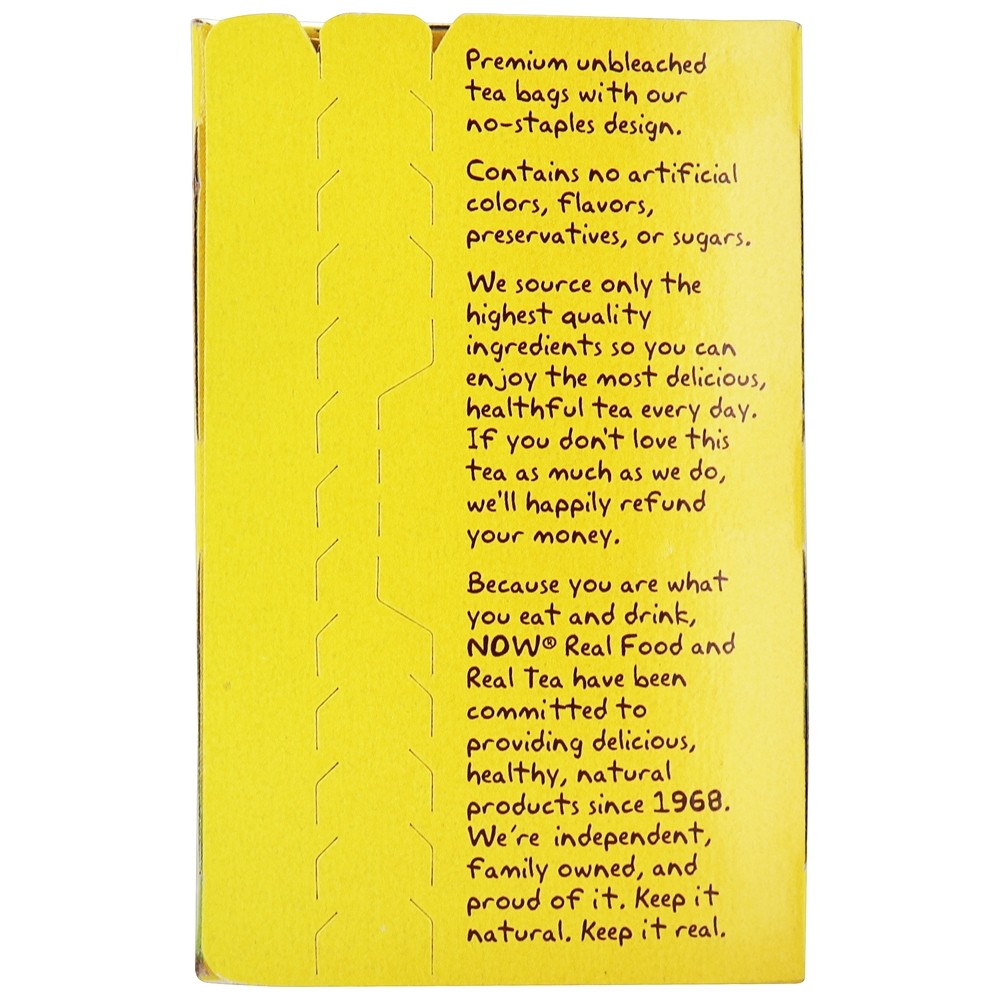 Premium unbleached
tea bags with our
no-staples design.
Contains no artificial
colors, flavors,
preservatives, or sugars.
We source only the
highest quality
ingredients so you can
enjoy the most delicious,
healthful tea every day.
If you don't love this
tea as much as we do,
we'll happily refund
your money.
Because you are what
you eat and drink,
NOW® Real Food and
Real Tea have been
committed to
providing delicious,
healthy, natural
products since 1968.
We're independent,
family owned, and
proud of it. Keep it
natural. Keep it real.